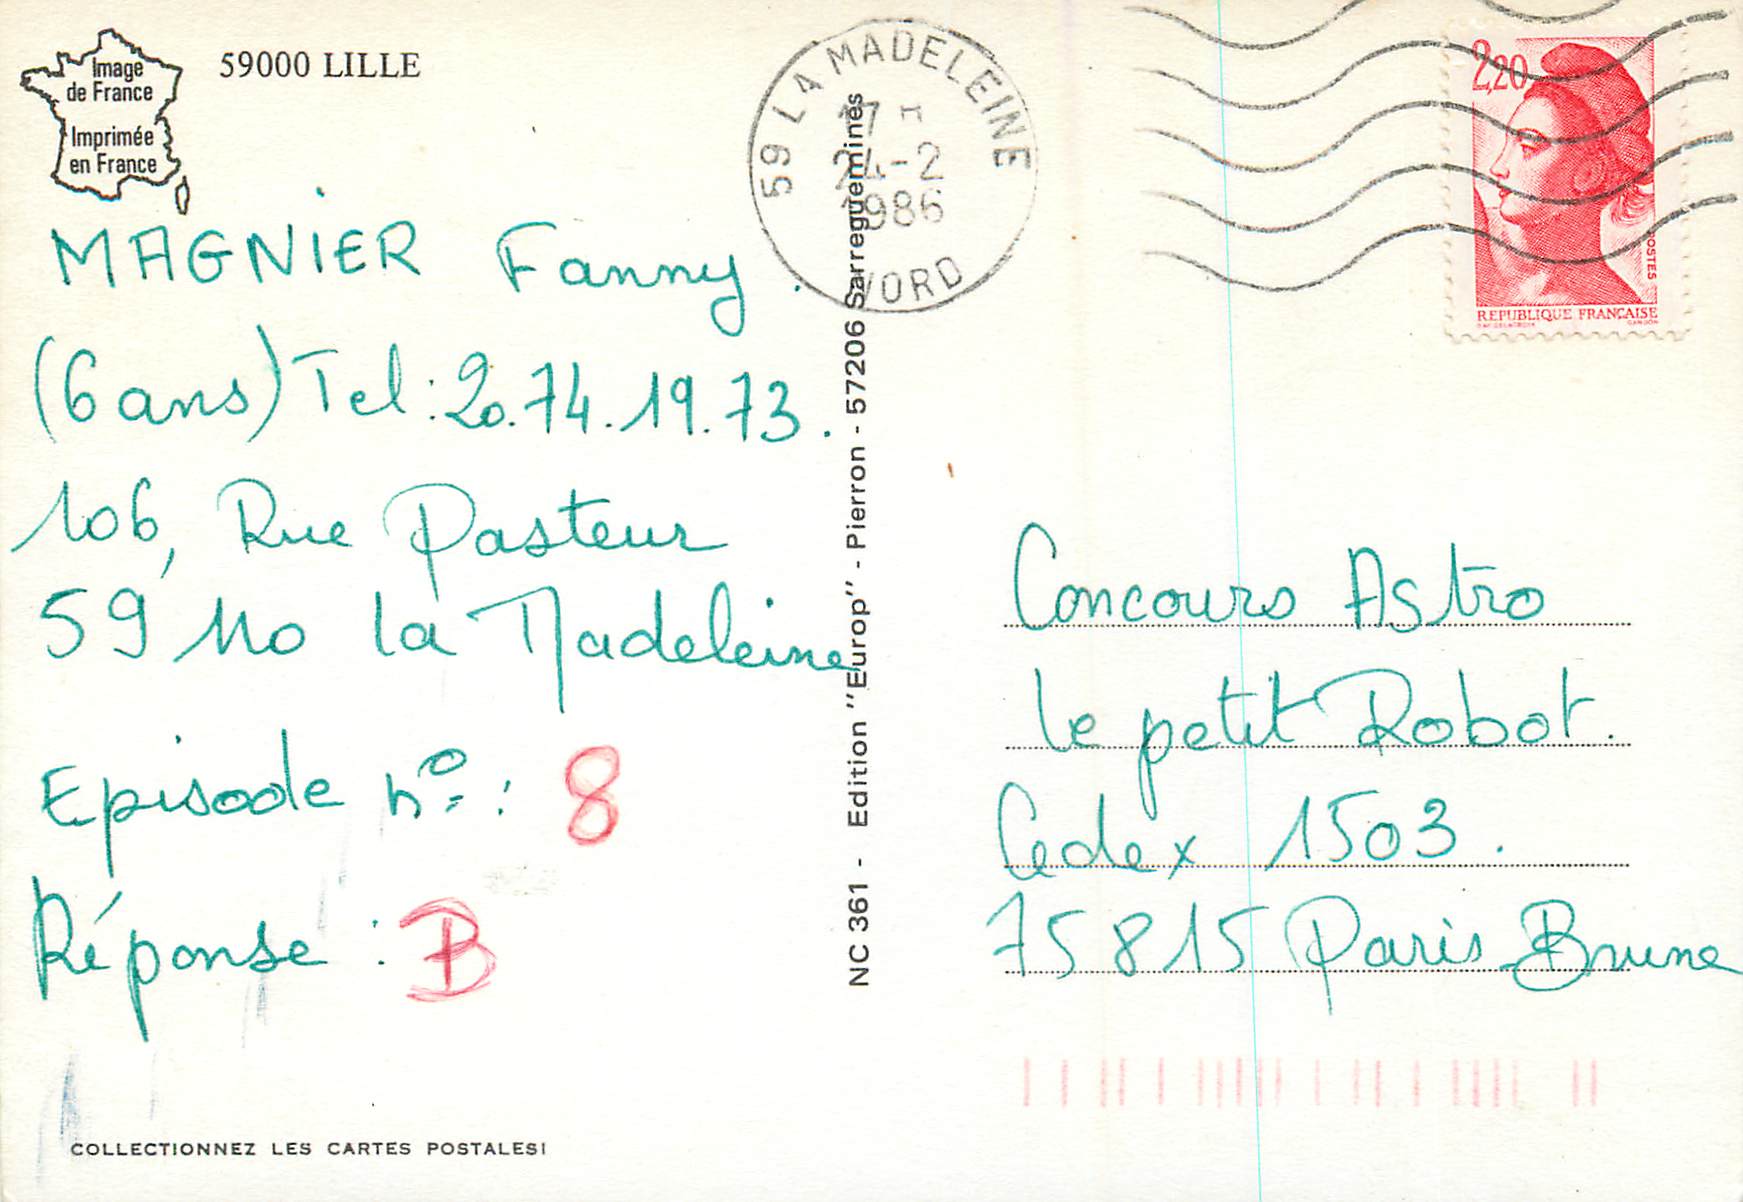 Image
de France
Imprimée
en France
59000 LILLE
MAGNIER Fanny.
(6 ans) Tel: 20.74.19.73.
106, Rue Pasteur
59 110 la Madeleine
Episode n°: 8
Réponse : B
COLLECTIONNEZ LES CARTES POSTALES!
NC 361 - Edition "Europ" - Pierron - 57206 Sarreguemines
59 LA MADELEINE
17 H
24-2
1986
NORD
2,20
POSTES
REPUBLIQUE FRANÇAISE
Concours Astro
le petit Robot.
Cedex 1503.
75815 Paris Brune